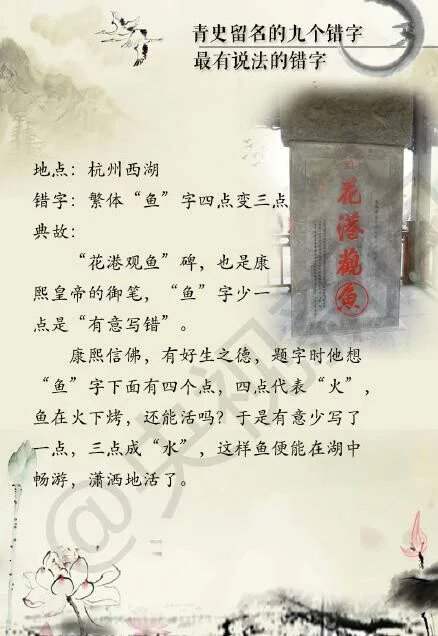 青史留名的九个错字
最有说法的错字
地点：杭州西湖
错字：繁体“鱼”字四点变三点
典故：
“花港观鱼”碑，也是康
熙皇帝的御笔，“鱼”字少一
点是“有意写错”。
康熙信佛，有好生之德，题字时他想
“鱼”字下面有四个点，四点代表“火”，
鱼在火下烤，还能活吗？于是有意少写了
一点，三点成“水”，这样鱼便能在湖中
畅游，潇洒地活了。
花港觀魚
@央视新